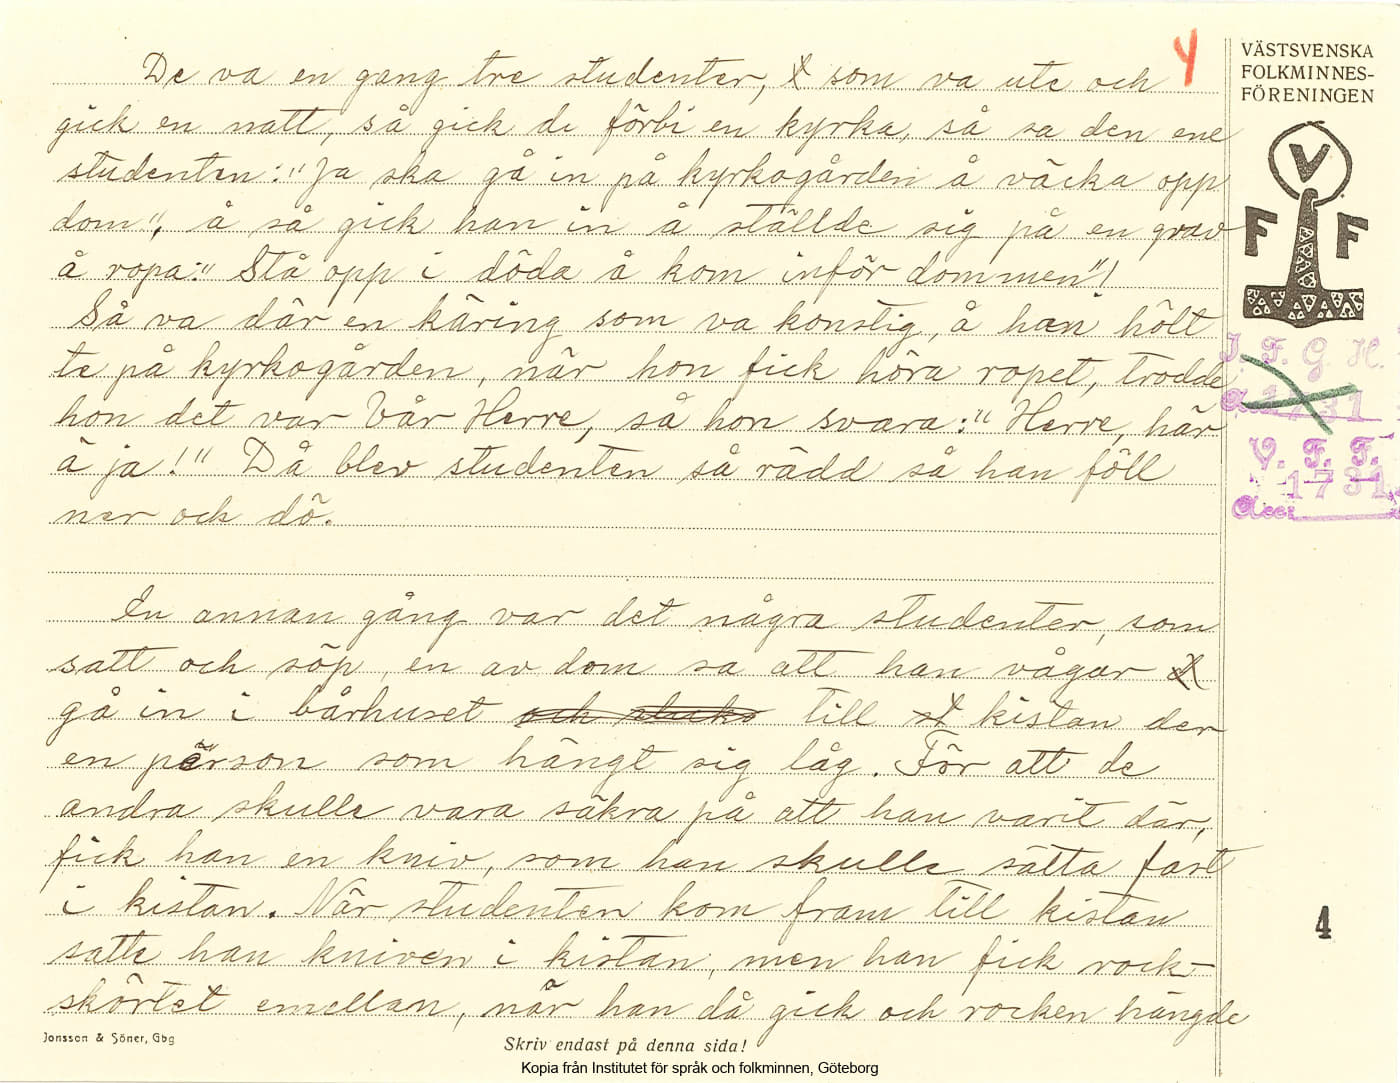 4
VÄSTSVENSKA
FOLKMINNES-
FÖRENINGEN
V
F F
De va en gang tre studenter, som va ute och
gick en natt, så gick de förbi en kyrka, så sa den ene
studenten: "Ja ska gå in på kyrkogården å väcka opp
dom", å så gick han in å ställde sig på en grav
å ropa: "Stå opp i döda å kom inför dommen"!
Så va där en käring som va konstig, å han hölt
te på kyrkogården, når hon fick höra ropet, trodde
hon det var Vår Herre, så hon svara: "Herre, här
ä ja!" Då blev studenten så rädd så han föll
ner och dö.
En annan gång var det några studenter, som
satt och söp, en av dom sa att han vågar
gå in i bårhuset och sticka till kistan der
en person som hängt sig låg. För att de
andra skulle vara säkra på att han varit där,
fick han en kniv, som han skulle sätta fast
i kistan. När studenten kom fram till kistan
satte han kniven i kistan, men han fick rock-
skörtet emellan, når han då gick och rocken hängde
I. F. G. H.
1731
V. F. F.
1731
Acc:
4
Jonsson & Söner, Gbg
Skriv endast på denna sida!
Kopia från Institutet för språk och folkminnen, Göteborg